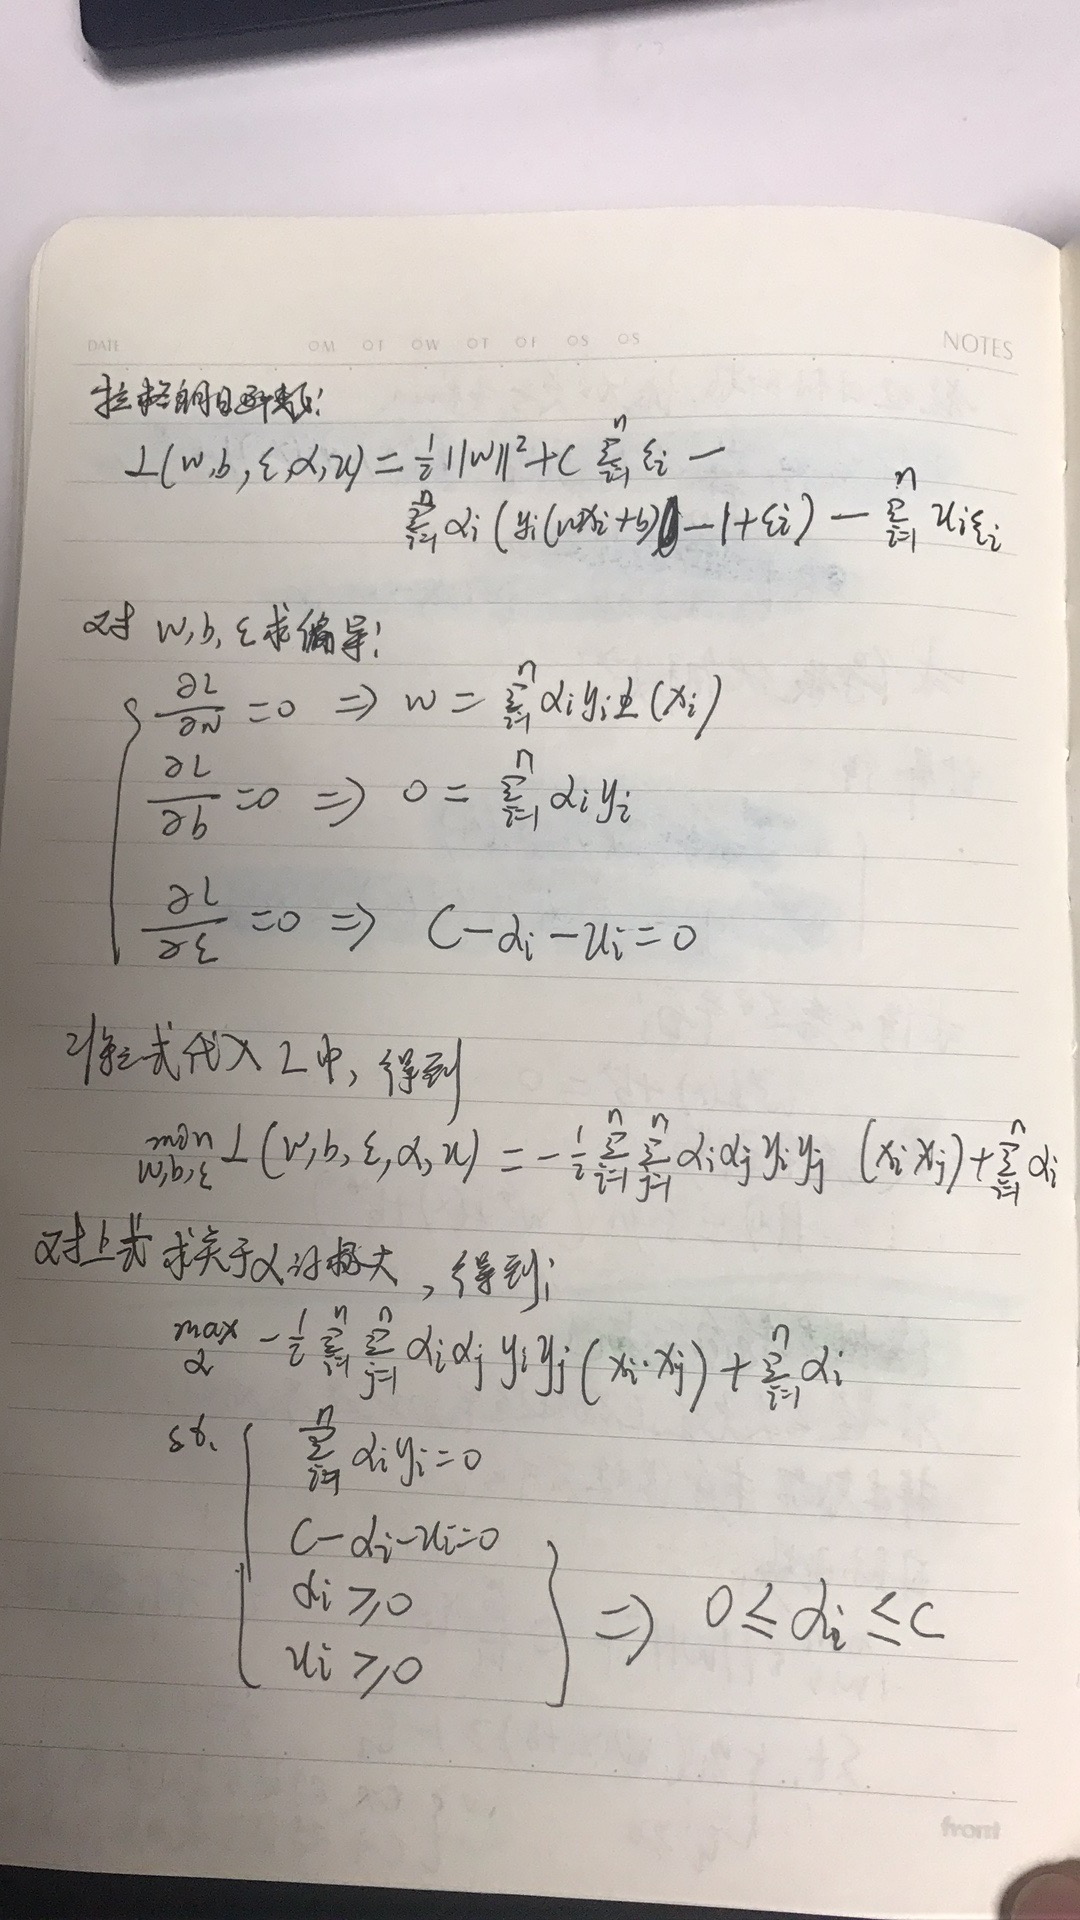 DATE OM OT OW OT OF OS OS NOTES
拉格朗日函数:
L(w,b,ξ,α,u) = 1/2 ||w||² + C Σ_{i=1}^{n} ξi −
Σ_{i=1}^{n} αi (yi(wxi+b) −1+ξi) − Σ_{i=1}^{n} uiξi
对 w,b,ξ求偏导:
∂L/∂w =0 => w = Σ_{i=1}^{n} αi yi Φ(xi)
∂L/∂b =0 => 0 = Σ_{i=1}^{n} αi yi
∂L/∂ξ =0 => C−αi−ui=0
将三式代入L中,得到
min_{w,b,ξ} L(w,b,ξ,α,u) = −1/2 Σ_{i=1}^{n} Σ_{j=1}^{n} αiαj yiyj (xi xj)+Σ_{i=1}^{n} αi
对上式求关于α的极大,得到:
max_α −1/2 Σ_{i=1}^{n} Σ_{j=1}^{n} αiαj yiyj (xi·xj) + Σ_{i=1}^{n} αi
st. Σ_{i=1}^{n} αiyi=0
C−αi−ui=0
αi ≥0
ui ≥0 => 0≤αi≤C
front